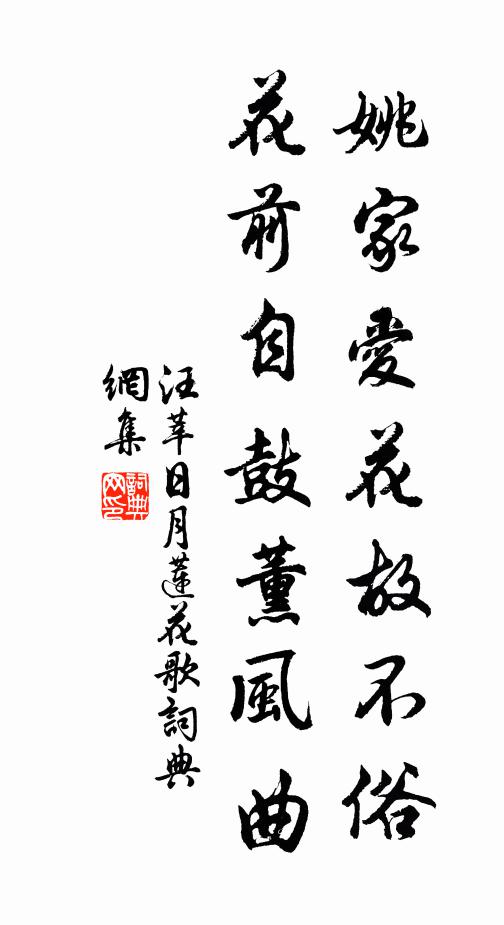 姚家愛花故不俗
花前自鼓薰風曲
汪莘日月蓮花歌詞典
網集
詞典
网印